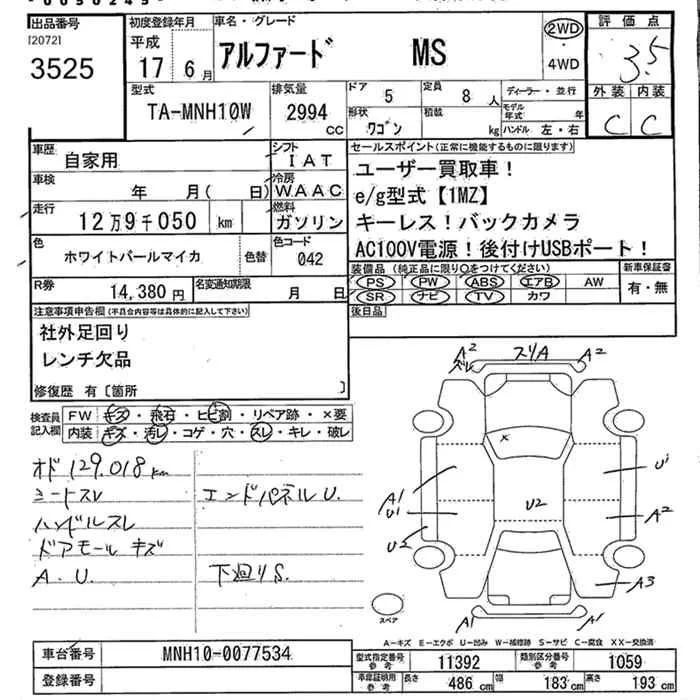 出品番号
120721
3525
初度登録年月
平成
17 6月
車名・グレード
アルファード MS
2WD
4WD
評価点
3.5
外装 内装
C C
型式
TA-MNH10W
排気量
2994
cc
ドア 5
定員 8 人
形状 ワゴン
積載 kg
ディーラー・並行
モデル年式 年
ハンドル 左・右
車歴 自家用
シフト IAT
車検 年 月( 日)
冷房 WAAC
走行 12万9千050 km
燃料 ガソリン
色 ホワイトパールマイカ 色替
色コード 042
R券 14,380円
名変通知期限 月 日
セールスポイント(正常に機能するものに限ります)
ユーザー買取車!
e/g型式【1MZ】
キーレス!バックカメラ
AC100V電源!後付けUSBポート!
装備品(純正品に限り○をつけてください)
PS PW ABS エアB AW
SR ナビ TV カワ
新車保証書
有・無
後日品
注意事項申告欄(不具合内容等は具体的に記入して下さい)
社外足回り
レンチ欠品
修復歴 有〔箇所 〕
検査員記入欄
FW キズ・飛石・ヒビ割・リペア跡・×要
内装 キズ・汚レ・コゲ・穴・スレ・キレ・破レ
オド129.018km
シートスレ
ハンドルスレ
ドアモールキズ
A.U.
エンドパネルU.
下廻りS.
A2 スリA A2
×
A1
U1
U2
U2
U1
A2
A3
A1 A1
スペア
A-キズ E-エクボ U-凹み W-補修跡 S-サビ C-腐食 XX-交換済
車台番号 MNH10-0077534
登録番号
型式指定番号 参考 11392
類別区分番号 参考 1059
車庫証明用 参考 長さ 486cm 幅 183cm 高さ 193cm